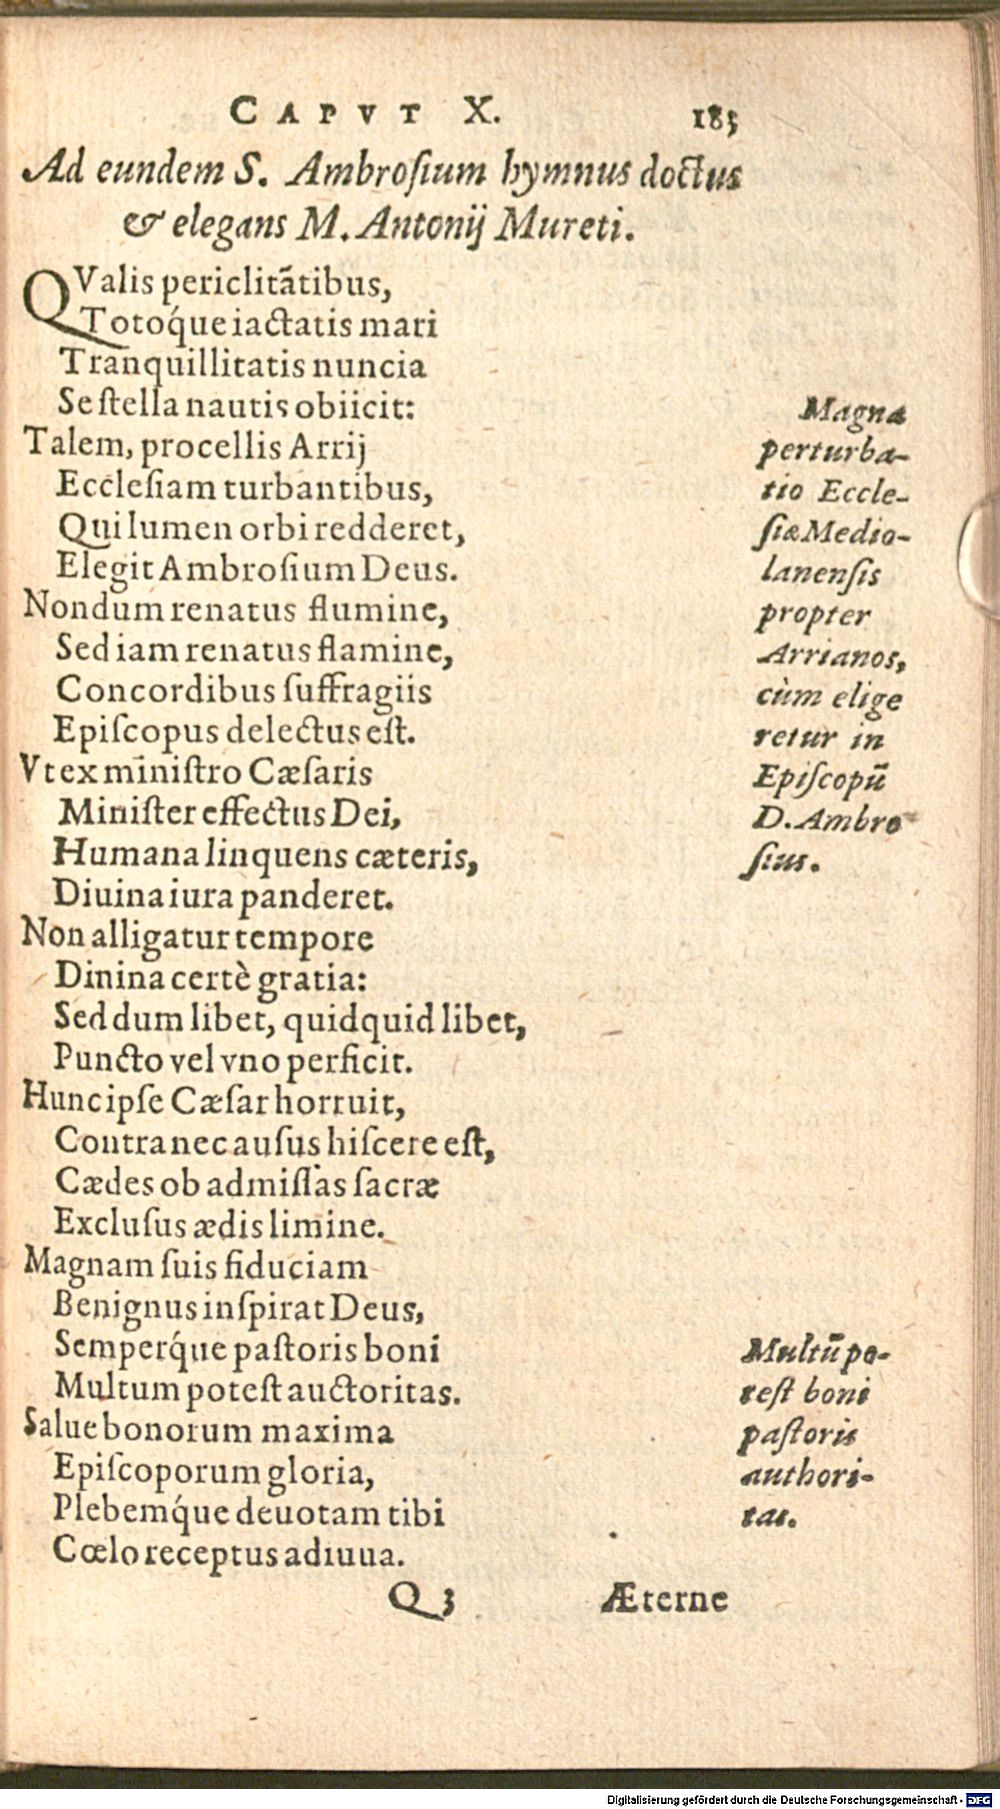 CAPVT X. 185
Ad eundem S. Ambroſium hymnus doctus
& elegans M. Antonij Mureti.
QValis periclitātibus,
Totoq́ue iactatis mari
Tranquillitatis nuncia
Se ſtella nautis obiicit:
Talem, procellis Arrij
Eccleſiam turbantibus,
Qui lumen orbi redderet,
Elegit Ambroſium Deus.
Nondum renatus flumine,
Sed iam renatus flamine,
Concordibus ſuffragiis
Epiſcopus delectus eſt.
Vt ex miniſtro Cæſaris
Miniſter effectus Dei,
Humana linquens cæteris,
Diuina iura panderet.
Non alligatur tempore
Dinina certè gratia:
Sed dum libet, quidquid libet,
Puncto vel vno perficit.
Hunc ipſe Cæſar horruit,
Contra nec auſus hiſcere eſt,
Cædes ob admiſſas ſacræ
Excluſus ædis limine.
Magnam ſuis fiduciam
Benignus inſpirat Deus,
Semperq́ue paſtoris boni
Multum poteſt auctoritas.
Salue bonorum maxima
Epiſcoporum gloria,
Plebemq́ue deuotam tibi
Cœlo receptus adiuua.
Magna
perturba-
tio Eccle-
ſiæ Medio-
lanenſis
propter
Arrianos,
cùm elige
retur in
Epiſcopū
D. Ambro
ſius.
Multū po-
teſt boni
paſtoris
authori-
tas.
Q 3 Æterne
Digitalisierung gefördert durch die Deutsche Forschungsgemeinschaft - DFG